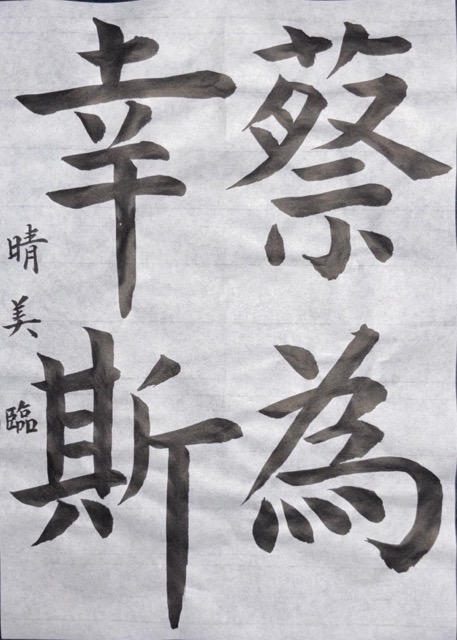 蔡為
幸斯
晴美臨